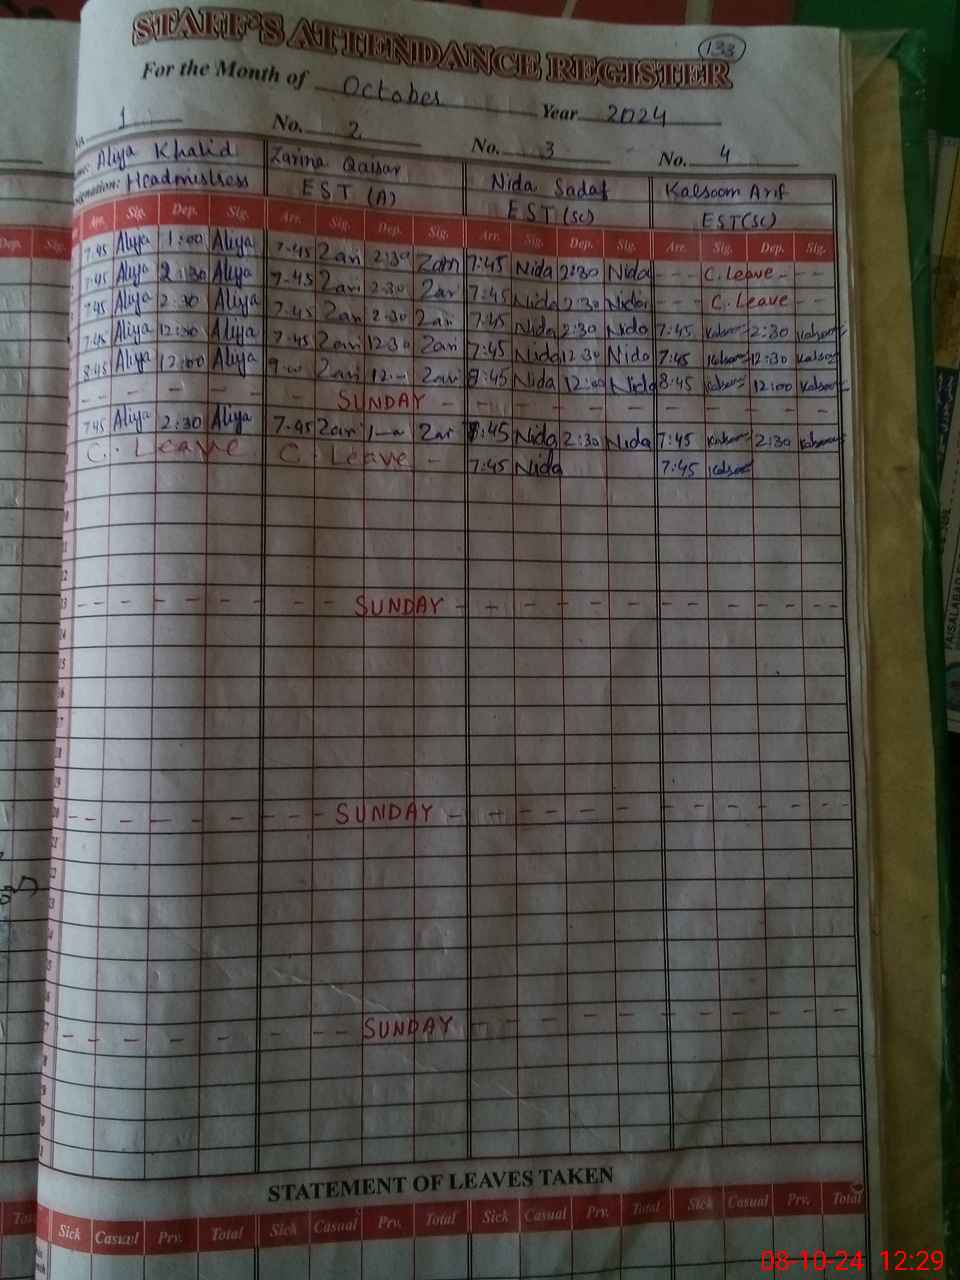 STAFF'S ATTENDANCE REGISTER
133
For the Month of October Year 2024
No. 1 No. 2 No. 3 No. 4
Aliya Khalid Zarina Qaisar Nida Sadaf Kalsoom Arif
Designation: Headmistress EST (A) EST (SC) EST (SC)
Dep. Sig. Arr. Sig. Dep. Sig. Arr. Sig. Dep. Sig. Arr. Sig. Dep. Sig. Arr. Sig. Dep. Sig.
7:45 Aliya 1:00 Aliya 7:45 Zari 2:30 Zari 7:45 Nida 2:30 Nida - - - C. Leave - -
7:45 Aliya 2:30 Aliya 7:45 Zari 2:30 Zari 7:45 Nida 2:30 Nida - - - C. Leave - -
7:45 Aliya 2:30 Aliya 7:45 Zari 2:30 Zari 7:45 Nida 2:30 Nida 7:45 Kalsoom 2:30 Kalsoom
7:45 Aliya 12:30 Aliya 7:45 Zari 12:30 Zari 7:45 Nida 12:30 Nida 7:45 Kalsoom 12:30 Kalsoom
8:45 Aliya 12:00 Aliya Zari Zari 8:45 Nida 12:00 Nida 8:45 Kalsoom 12:00 Kalsoom
- - - - - SUNDAY - - - - - - - - -
7:45 Aliya 2:30 Aliya 7:45 Zari Zari 7:45 Nida 2:30 Nida 7:45 Kalsoom 2:30 Kalsoom
C. Leave C. Leave - 7:45 Nida 7:45 Kalsoom
- - - - - - SUNDAY - - - - - - - - -
- - - - - - SUNDAY - - - - - - - - -
- - - - - - SUNDAY - - - - - - - - -
STATEMENT OF LEAVES TAKEN
Sick Casual Prv. Total Sick Casual Prv. Total Sick Casual Prv. Total Sick Casual Prv. Total
08-10-24 12:29